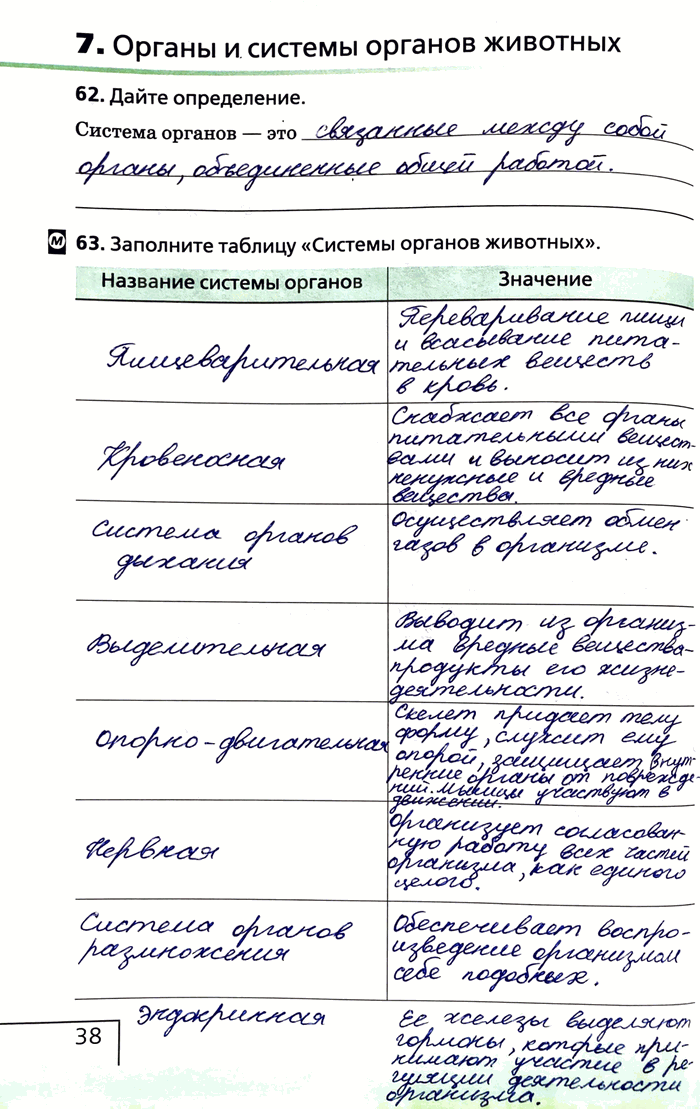 7. Органы и системы органов животных
62. Дайте определение.
Система органов — это связанные между собой
органы, объединенные общей работой.
М 63. Заполните таблицу «Системы органов животных».
Название системы органов
Значение
Пищеварительная
Переваривание пищи
и всасывание пита-
тельных веществ
в кровь.
Кровеносная
Снабжает все органы
питательными вещест-
вами и выносит из них
ненужные и вредные
вещества.
Система органов
дыхания
Осуществляет обмен
газов в организме.
Выделительная
Выводит из организ-
ма вредные вещества-
продукты его жизне-
деятельности.
Опорно-двигательная
Скелет придает телу
форму, служит ему
опорой, защищает внут-
ренние органы от поврежде-
ний. Мышцы участвуют в
движении.
Нервная
Организует согласован-
ную работу всех частей
организма, как единого
целого.
Система органов
размножения
Обеспечивает воспро-
изведение организмом
себе подобных.
Эндокринная
Ее железы выделяют
гормоны, которые при-
нимают участие в ре-
гуляции деятельности
организма.
38